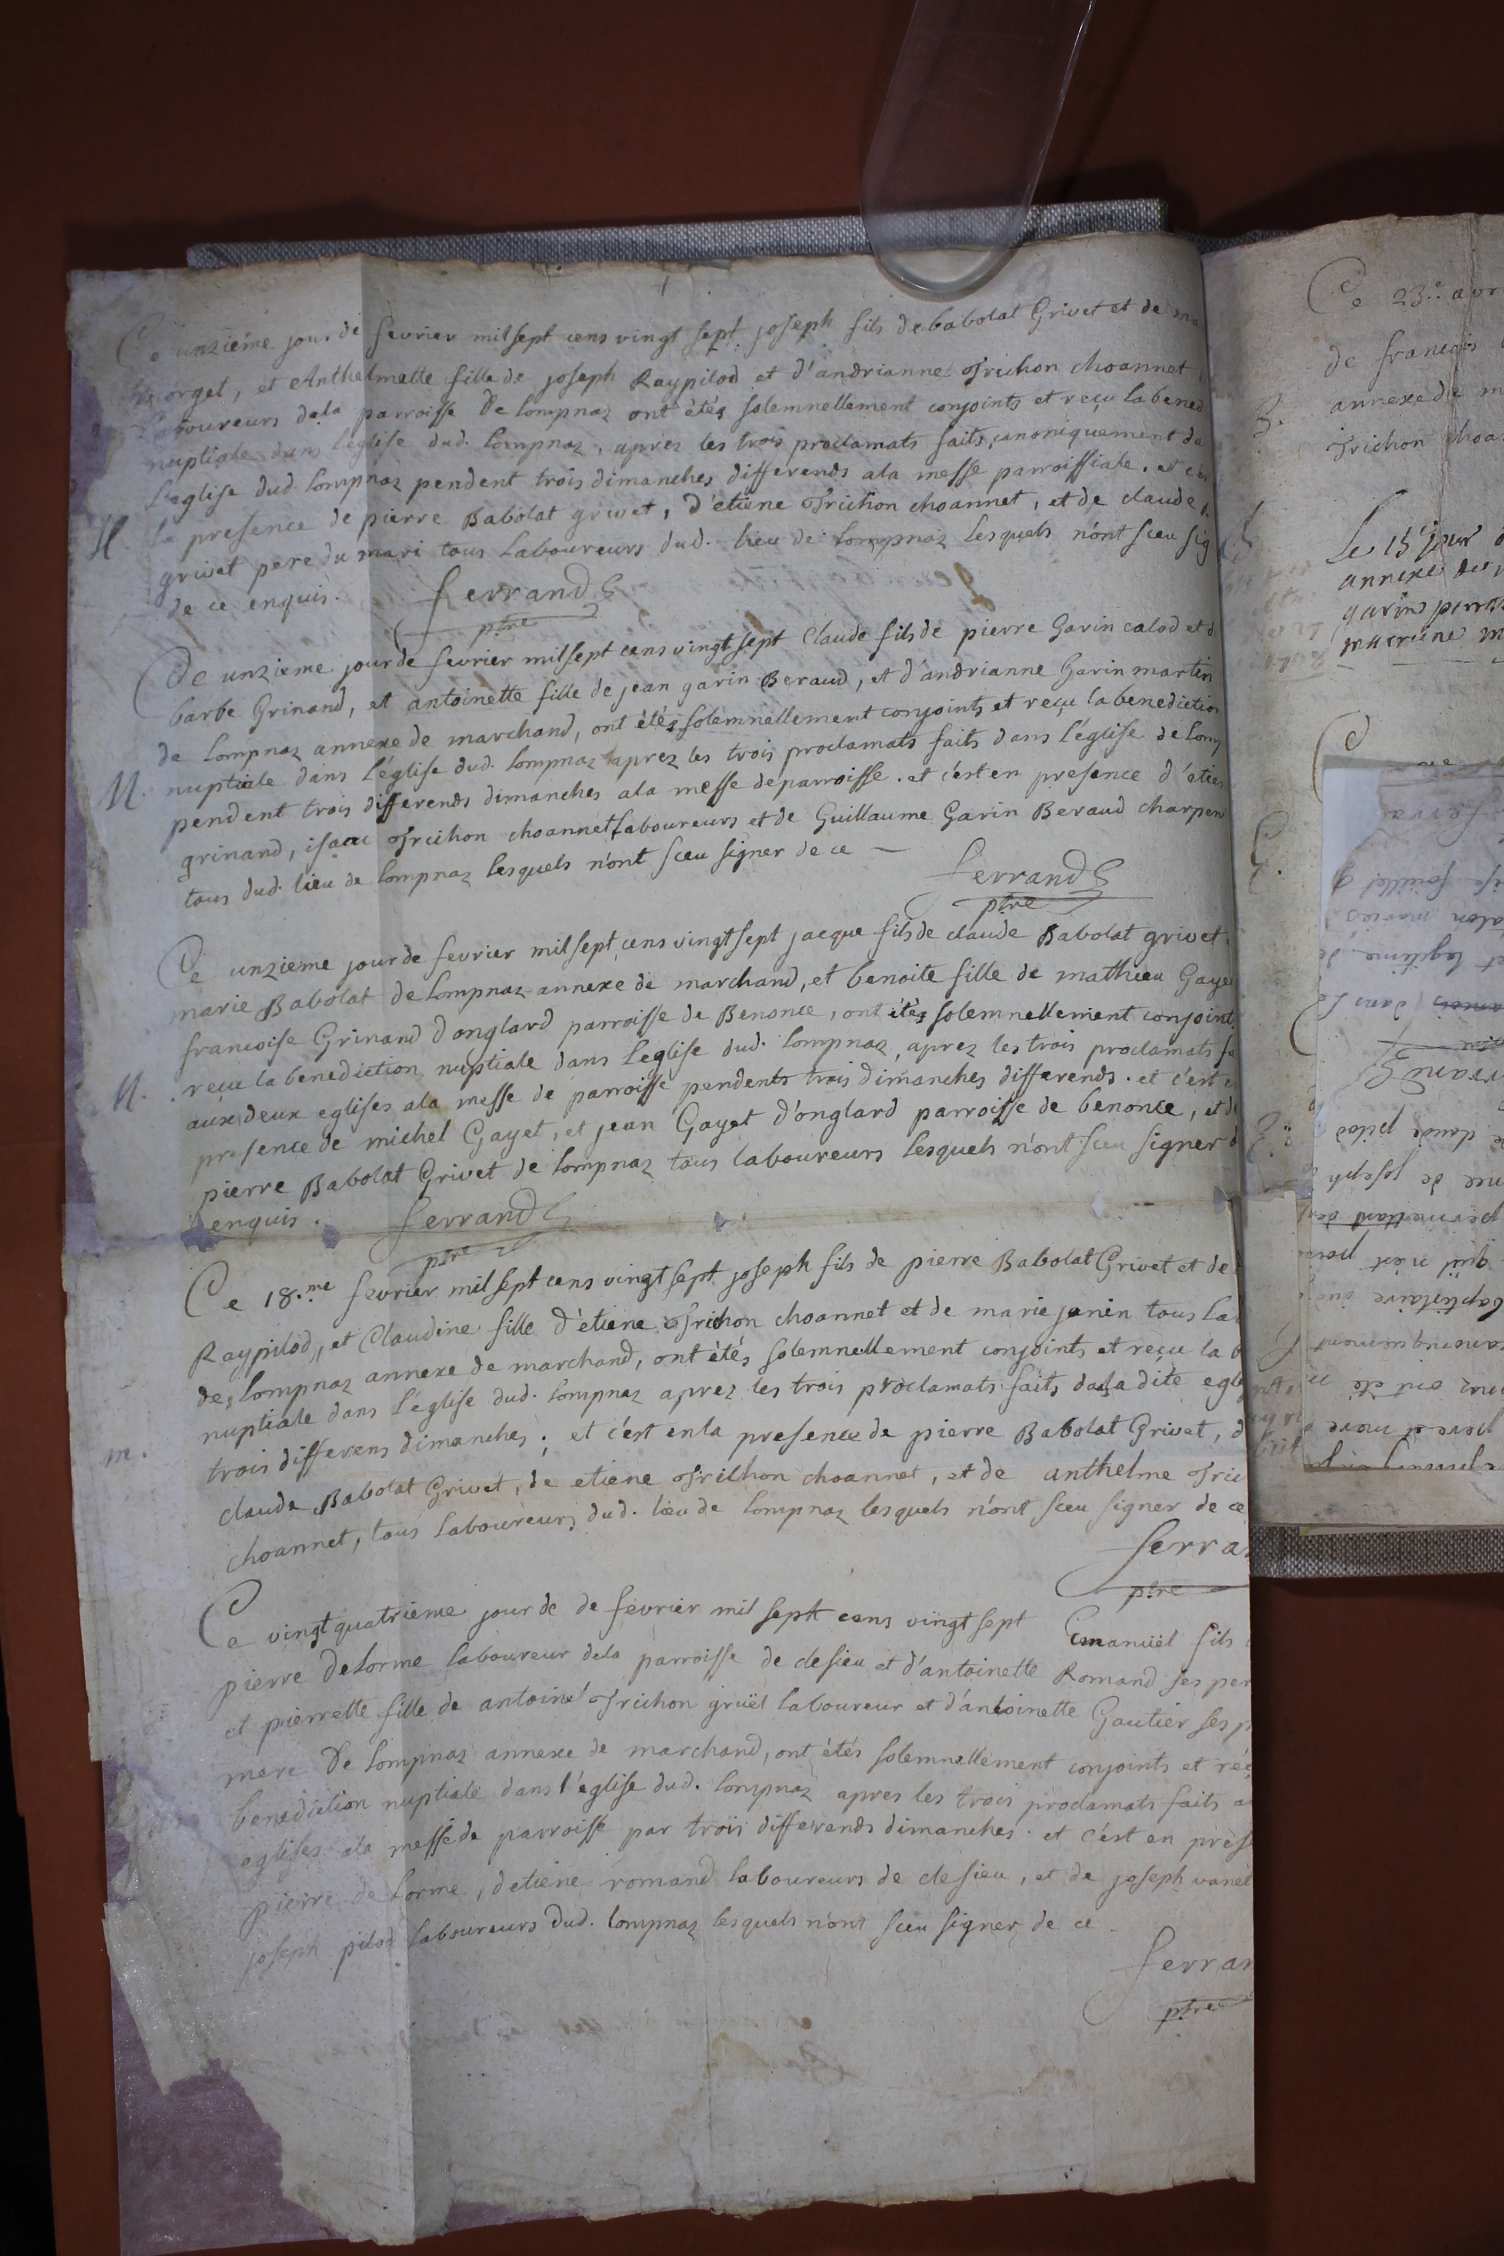 Ce unzieme jour de fevrier mil sept cens vingt sept joseph fils de babolat Grivet et de
et Anthelmette fille de joseph Raypilod et d'andrianne Trichon choannet
Laboureurs dela parroisse De Lompnaz ont étés solemnellement conjoints et reçu la bened
nuptiale dans l'église dud. Lompnaz, aprez les trois proclamats faits canoniquement da
L'eglise dud. Lompnaz pendent trois dimanches differends ala messe parroissiale. et
M. la presence de pierre Babolat grivet, d'etiene Trichon choannet, et de claude
grivet pere du mari tous Laboureurs dud. lieu de Lompnaz Lesquels n'ont sceu sig
de ce enquis.
ferrand
ptre
Ce unzieme jour de fevrier mil sept cens vingt sept Claude fils de pierre Garin calod et d
barbe Grinand, et antoinette fille de jean garin Beraud, et d'andrianne Garin martin
de Lompnaz annexe de marchand, ont étés solemnellement conjoints et reçu la benediction
M. nuptiale dans l'église dud. Lompnaz aprez les trois proclamats faits dans l'église de Lomp
pendent trois differends dimanches ala messe de parroisse. et c'est en presence d'etien
grinand, isaac Trichon choannet Laboureurs et de Guillaume Garin Beraud charpen
tous dud. lieu de Lompnaz Lesquels n'ont sceu signer de ce —
ferrand
ptre
Ce unzieme jour de fevrier mil sept cens vingt sept jacque fils de claude Babolat grivet
marie Babolat de Lompnaz annexe de marchand, et benoite fille de mathieu Gaye
francoise Grinand d'onglard parroisse de Benonce, ont étés solemnellement conjoint
M. reçu la benediction nuptiale dans l'eglise dud. Lompnaz, aprez les trois proclamats fa
aux deux eglises ala messe de parroisse pendents trois dimanches differends. et c'est e
presence de michel Gayet, et jean Gayet d'onglard parroisse de benonce, et d
pierre Babolat Grivet de Lompnaz tous laboureurs lesquels n'ont sceu signer d
enquis.
ferrand
ptre
Ce 18.me fevrier mil sept cens vingt sept joseph fils de pierre Babolat Grivet et de
Raypilod, et Claudine fille d'étiene Trichon choannet et de marie janin tous La
de Lompnaz annexe de marchand, ont étés solemnellement conjoints et reçu la b
nuptiale dans l'église dud. Lompnaz aprez les trois proclamats faits dala dite egli
m. trois differens dimanches; et c'est en la presence de pierre Babolat Grivet, d
claude Babolat Grivet, de etiene Trichon choannet, et de anthelme Tric
choannet, tous Laboureurs dud. lieu de Lompnaz lesquels n'ont sceu signer de ce
ferran
ptre
Ce vingt quatrieme jour de de fevrier mil sept cens vingt sept Emanuël fils
pierre Delorme laboureur dela parroisse de clesieu et d'antoinette Romand ses per
et pierrette fille de antoine Trichon gruël laboureur et d'antoinette Gautier ses p
mere De Lompnaz annexe de marchand, ont étés solemnellement conjoints et reç
benediction nuptiale dans l'église dud. Lompnaz apres les trois proclamats faits a
eglises ala messe de parroisse par trois differends dimanches. et c'est en prese
pierre de Lorme, d'etiene romand laboureurs de clesieu, et de joseph
joseph pilod laboureurs dud. Lompnaz lesquels n'ont sceu signer de ce.
ferran
ptre
Ce 23.e avr
de francois
annexe de m
Trichon choa
Le 15 jour
annexe de
garin
marrine m